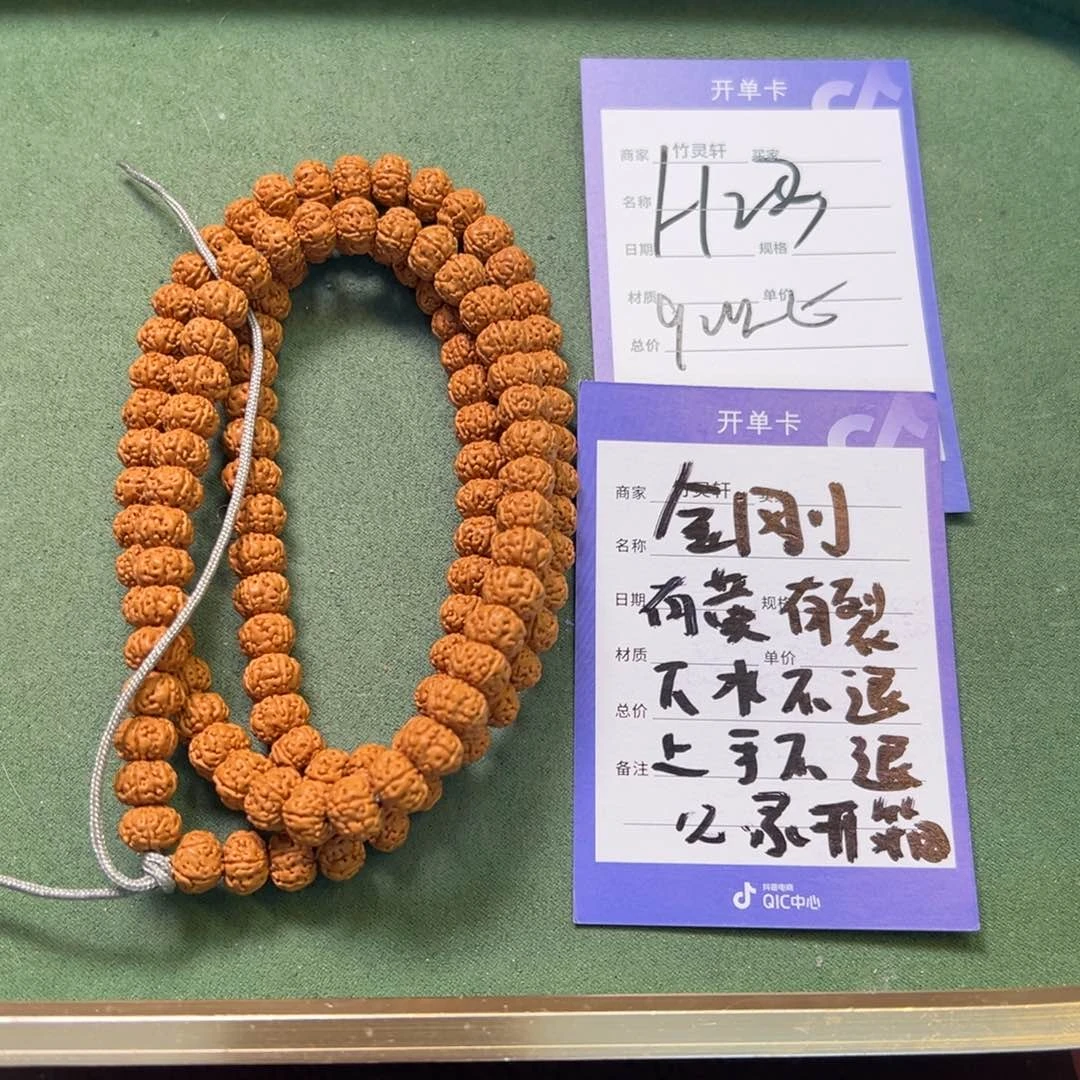 开单卡
商家 竹灵轩 买家
名称
日期 规格
材质 单价
总价
开单卡
商家 竹灵轩
金刚
名称
日期 有黄 规格 有裂
材质 单价
下水不退
总价
上手不退
备注
必录开箱
抖音电商
QIC中心